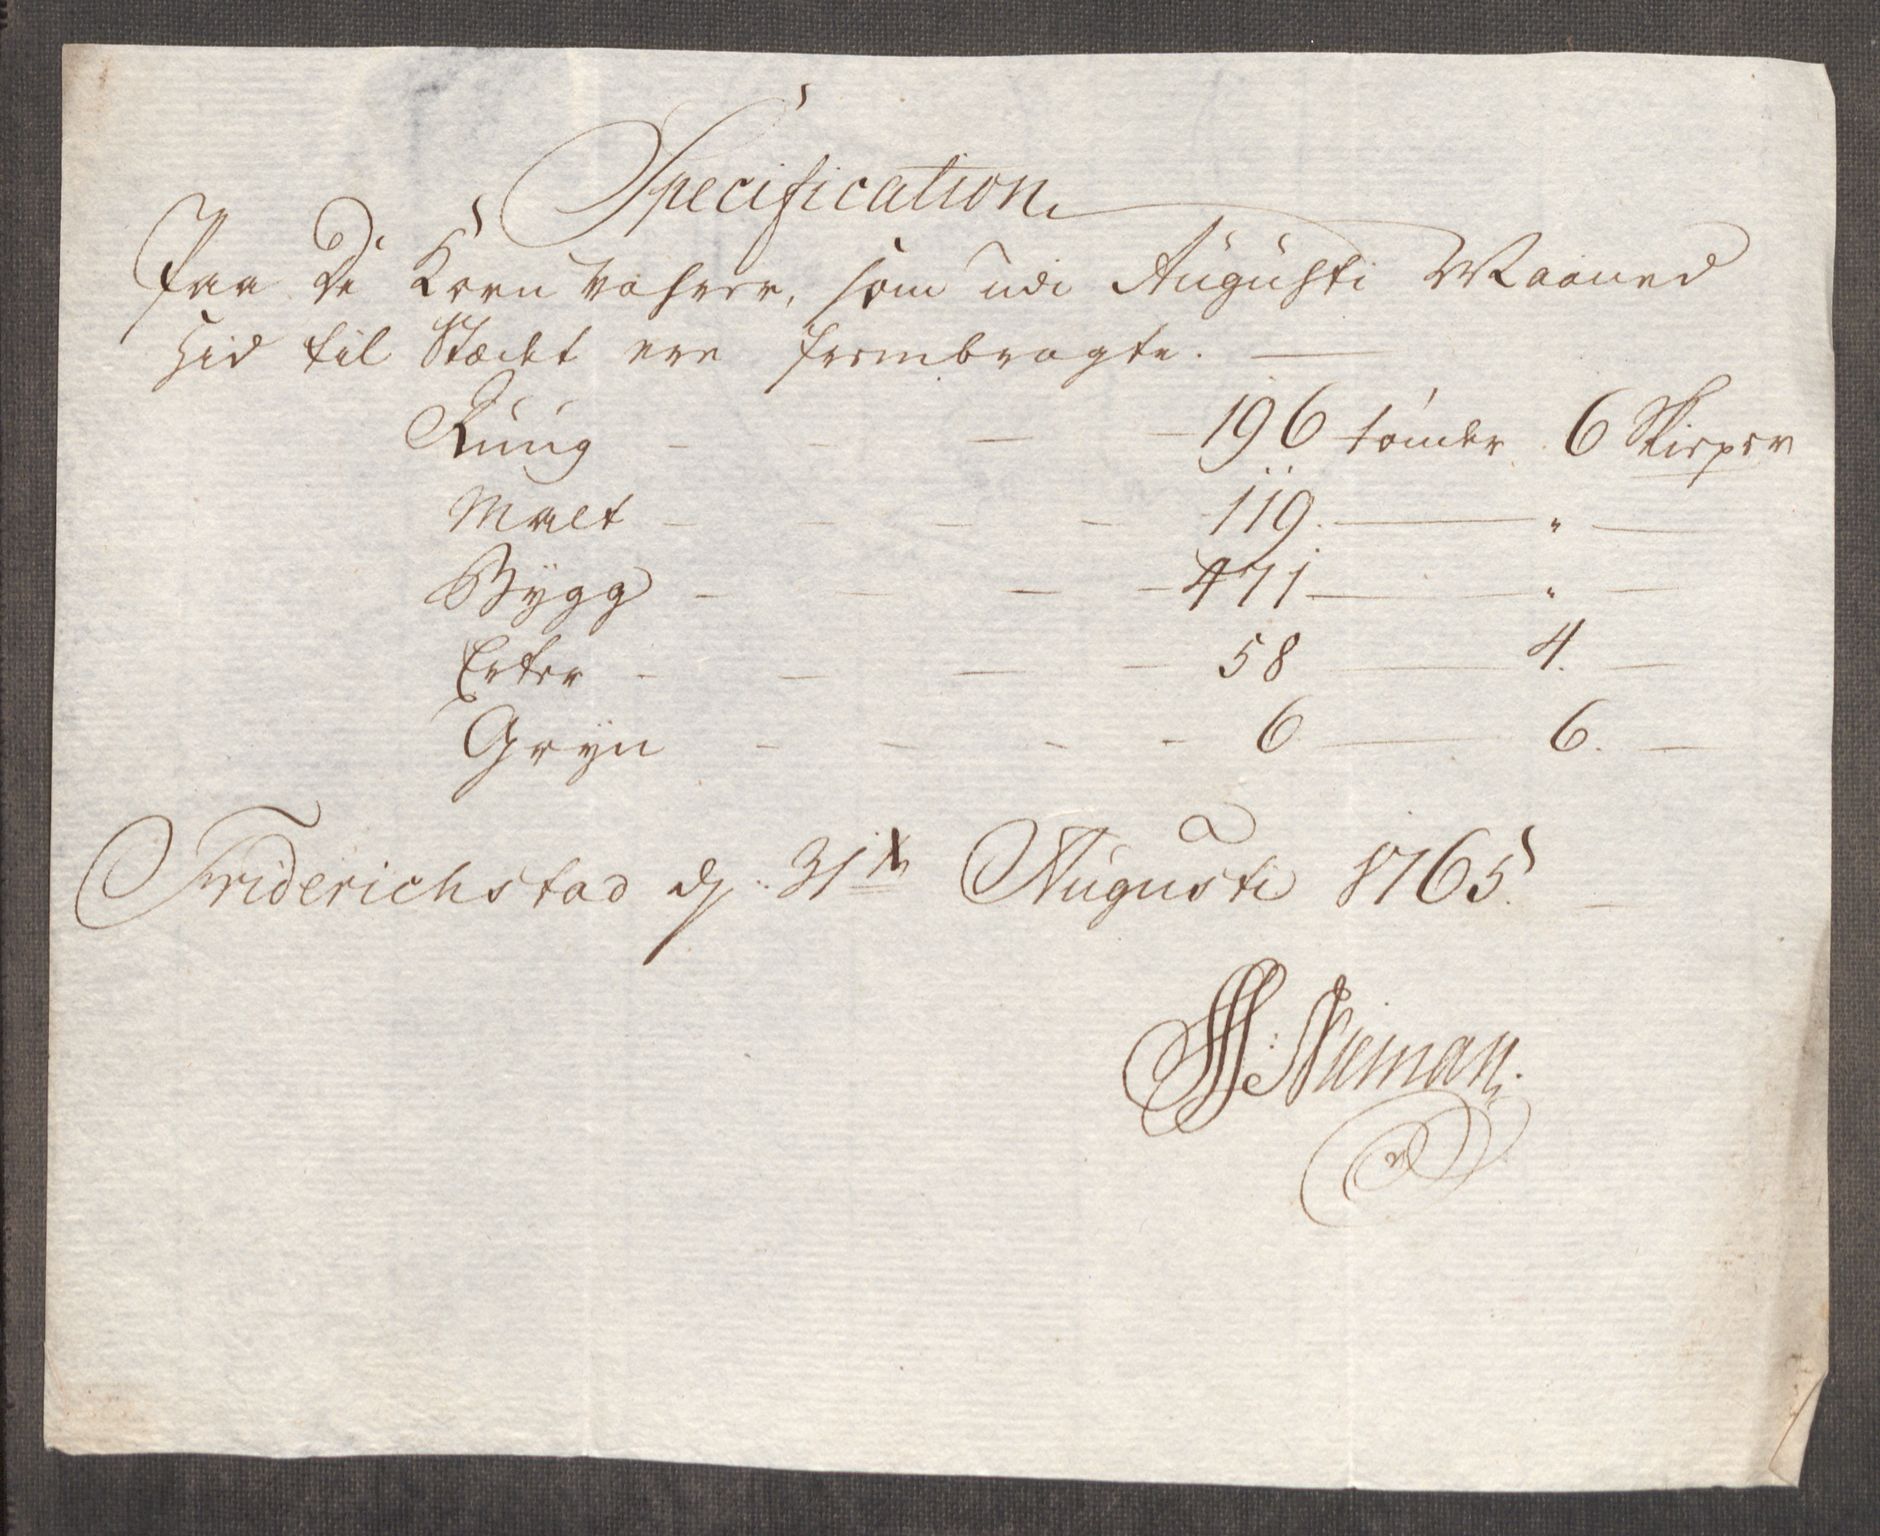 Specification
Paa De Korn Vahrer, som udi Augusti Maaned
hid til Stædet ere frembragte. —
Rüug - - - - 196 tønder 6 Skiepper
Malt - - - - 119. — " —
Bygg - - - - 471 — " —
Erter - - - - 58 — 4. —
Gryn - - - - 6 — 6. —
Friderichstad d. 31te Augusti 1765. —
Nieman.